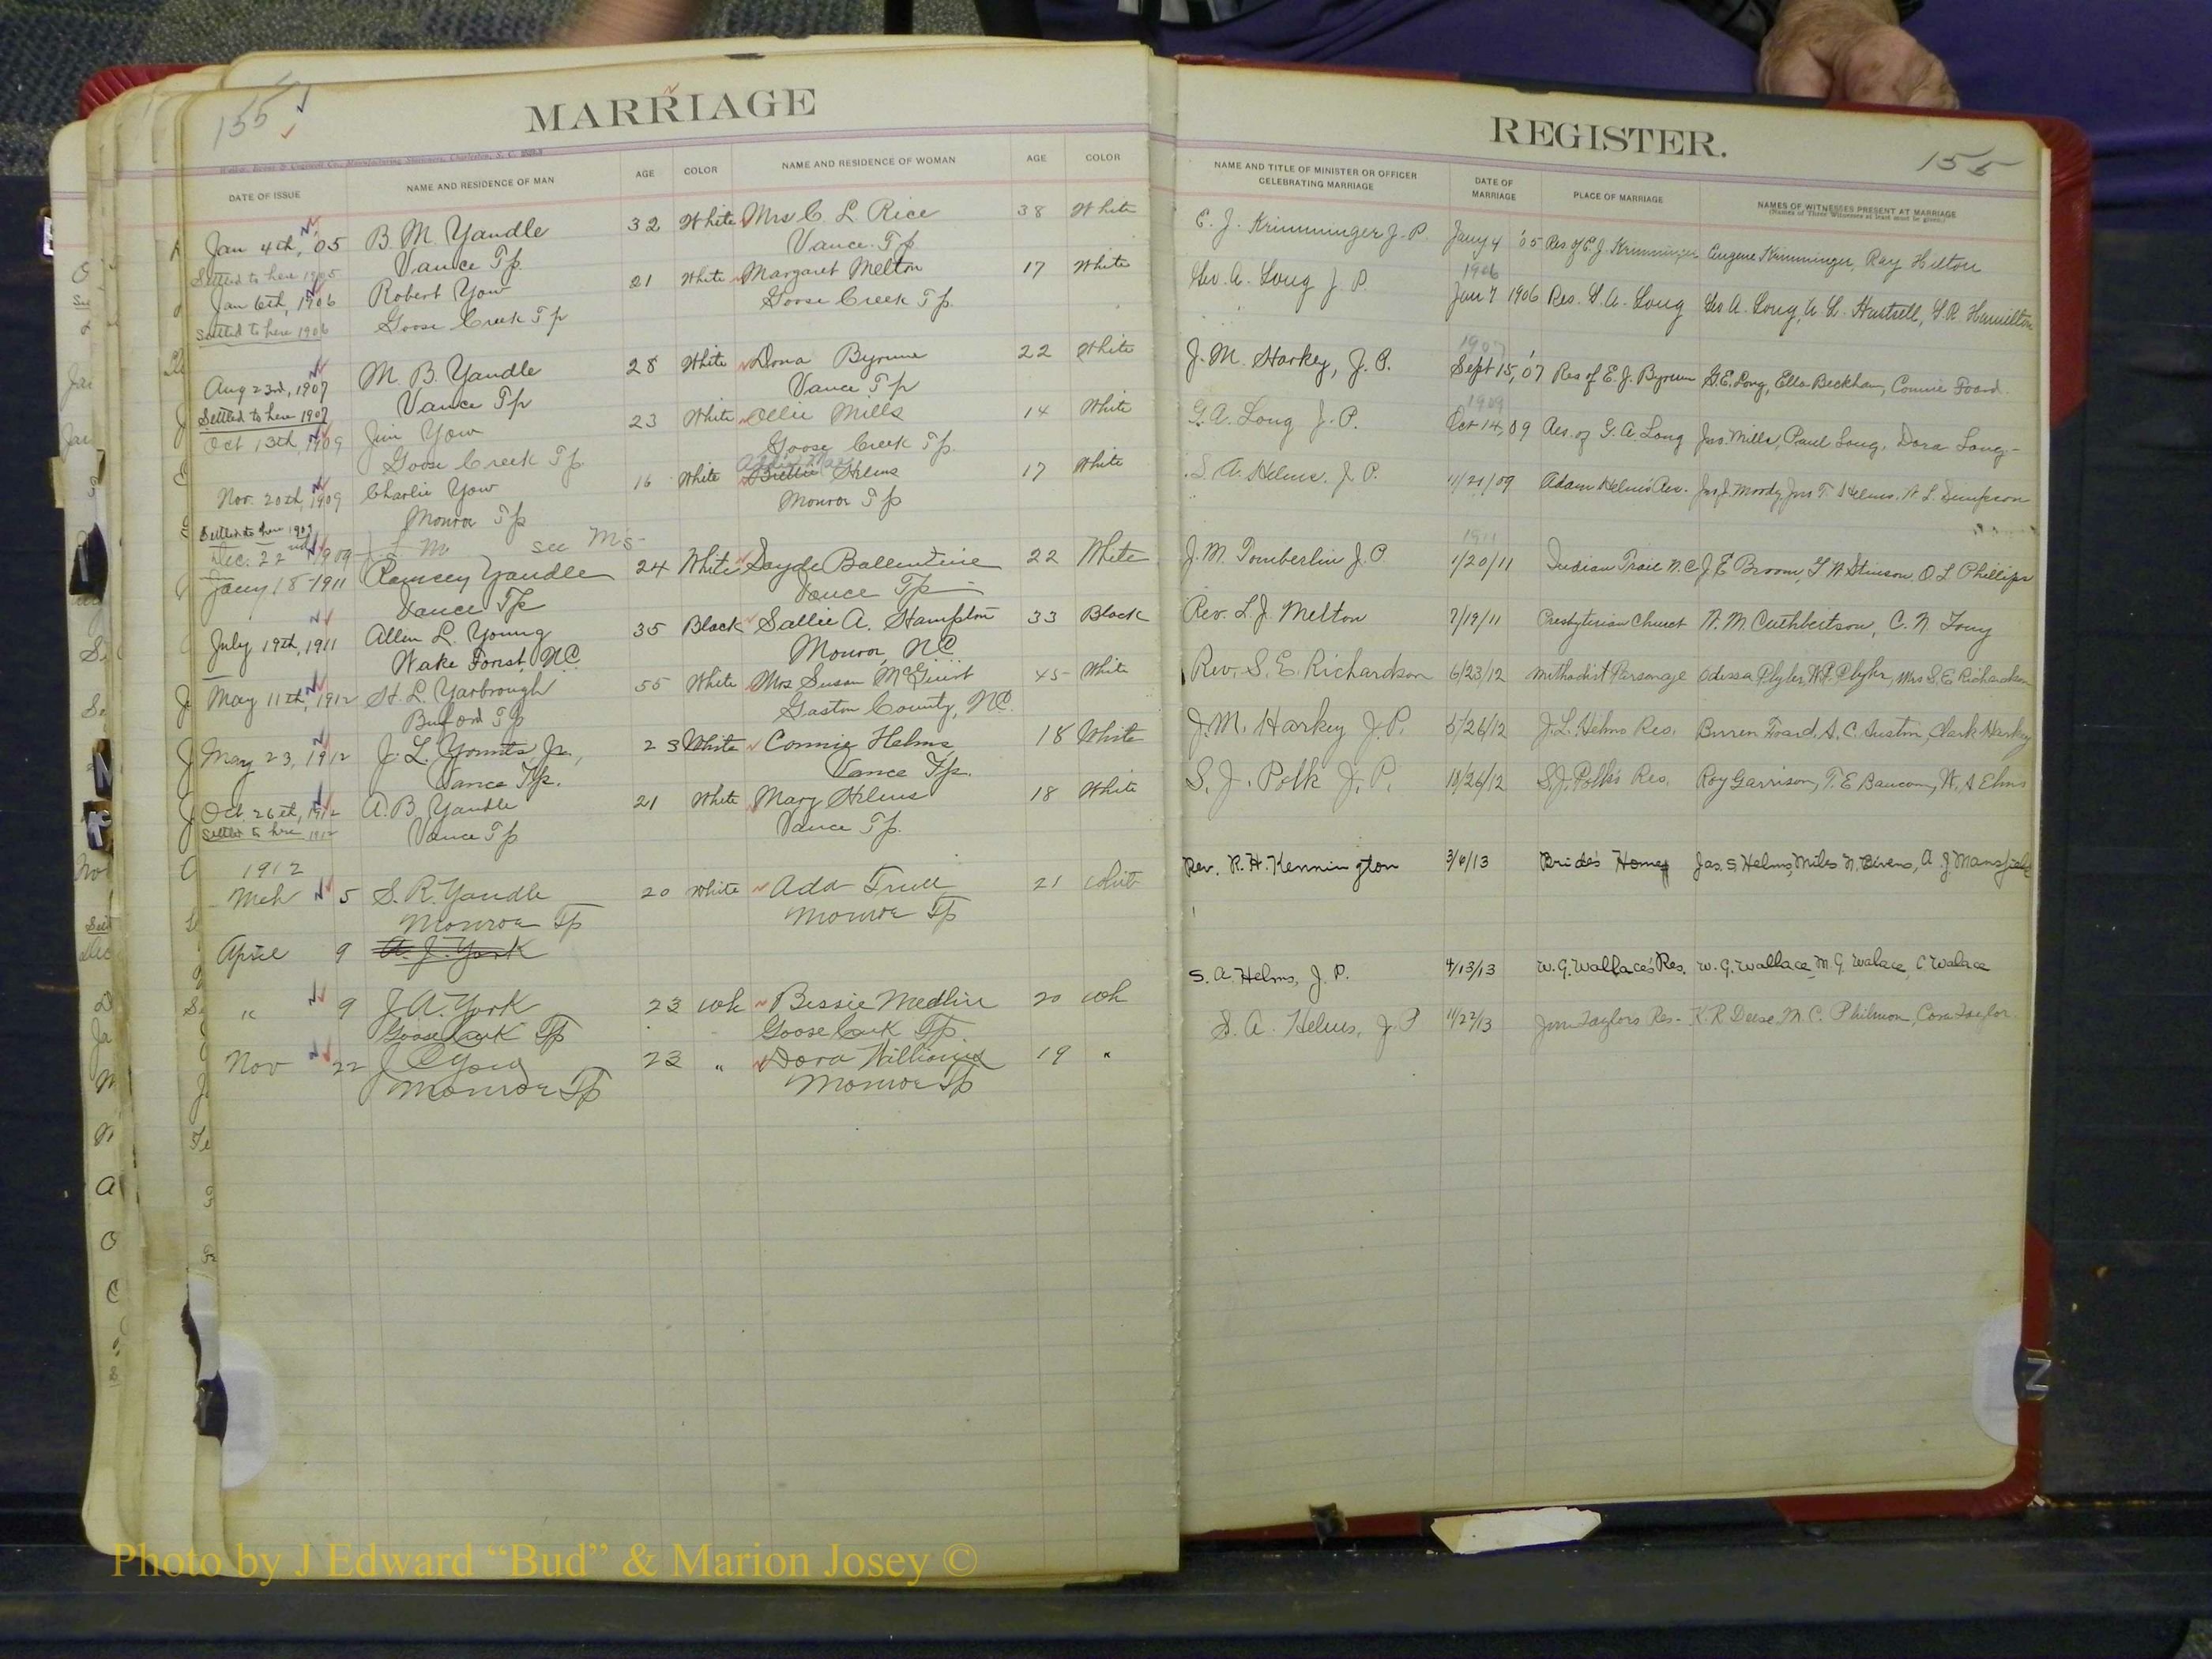 155
MARRIAGE
DATE OF ISSUE NAME AND RESIDENCE OF MAN AGE COLOR NAME AND RESIDENCE OF WOMAN AGE COLOR
Jan 4th, '05 B. M. Yandle 32 White Mrs C. L. Rice 38 White
Vance Tp Vance Tp
Settled to here 1905
Jan 6th, 1906 Robert Yow 21 White Margaret Melton 17 White
Goose Creek Tp Goose Creek Tp.
Settled to here 1906
Aug 23rd, 1907 M. B. Yandle 28 White Dona Byrum 22 White
Vance Tp Vance Tp
Settled to here 1907
Oct 13th, 1909 Jim Yow 23 White Ollie Mills 14 White
Goose Creek Tp. Goose Creek Tp.
Nov. 20th, 1909 Charlie Yow 16 White Helms 17 White
Monroe Tp Monroe Tp
Settled to here 1909
Dec. 22nd 1909 see M's
Jany 18-1911 Ramsey Yandle 24 White Sayde Ballentine 22 White
Vance Tp Vance Tp
July 19th, 1911 Allen L. Young 35 Black Sallie A. Hampton 33 Black
Wake Forest, NC Monroe, NC
May 11th, 1912 H. L. Yarbrough 55 White Mrs Susan McGuirt 45 White
Buford Tp Gaston County, NC.
May 23, 1912 J. L. Younts, Jr., 23 White Connie Helms 18 White
Vance Tp. Vance Tp.
Oct. 26th, 1912 A. B. Yandle 21 White Mary Helms 18 White
Settled to here 1912 Vance Tp Vance Tp.
1912
Mch 5 S. R. Yandle 20 White Ada Trull 21 White
Monroe Tp Monroe Tp
April 9 A. J. York
" 9 J. A. York 23 Wh Bessie Medlin 20 Wh
Goose Creek Tp Goose Creek Tp
Nov 22 J C Yow 23 " Dora Williams 19 "
Monroe Tp Monroe Tp
REGISTER.
155
NAME AND TITLE OF MINISTER OR OFFICER CELEBRATING MARRIAGE DATE OF MARRIAGE PLACE OF MARRIAGE NAMES OF WITNESSES PRESENT AT MARRIAGE
(Names of Three Witnesses at least must be given.)
E. J. Krimminger J. P. Jany 4 '05 Res. of E. J. Krimminger Eugene Krimminger, Ray Helton
1906
Geo. A. Long J. P. Jan 7 1906 Res. G. A. Long Geo A. Long, A. L. Hartsell, G. R. Hamilton
1907
J. M. Harkey, J. P. Sept 15, '07 Res of E. J. Byrum G. E. Long, Ella Beckham, Connie Foard.
1909
G. A. Long J. P. Oct 14, 09 Res. of G. A. Long Jno. Mills, Paul Long, Dora Long
S. A. Helms, J. P. 11/21/09 Adam Helms' Res. Jas. J. Moody, Jas T. Helms, A. L. Simpson
1911
J. M. Tomberlin J. P. 1/20/11 Indian Trail N.C. J. E Broom, T. W. Stinson, O L Phillips
Rev. L. J. Melton 7/19/11 Presbyterian Church N. M. Cuthbertson, C. N.
Rev. S. E. Richardson 6/23/12 Methodist Parsonage Odessa Plyler, W. P. Plyler, Mrs S. E. Richardson
J. M. Harkey J. P. 5/26/12 J. L. Helms Res. Burren Foard, A. C. Austin, Clark Harkey
S. J. Polk J. P. 10/26/12 S. J. Polk's Res. Roy Garrison, T. E Baucom, W. A Elms
Rev. R. H. Kennington 3/6/13 Bride's Home Jas. S. Helms, Miles N. A. J. Mansfield
S. A. Helms, J. P. 4/13/13 W. G. Wallace's Res. W. G. Wallace, M. G. Walace, C Walace
S. A. Helms, J. P 11/22/13 Jim Taylors Res- K. R Deese, M. C. Philmon, Cora Taylor.
Photo by J Edward “Bud” & Marion Josey ©